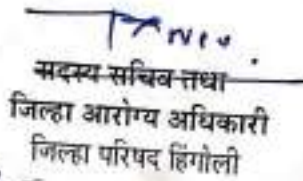 सदस्य सचिव तथा
जिल्हा आरोग्य अधिकारी
जिल्हा परिषद हिंगोली